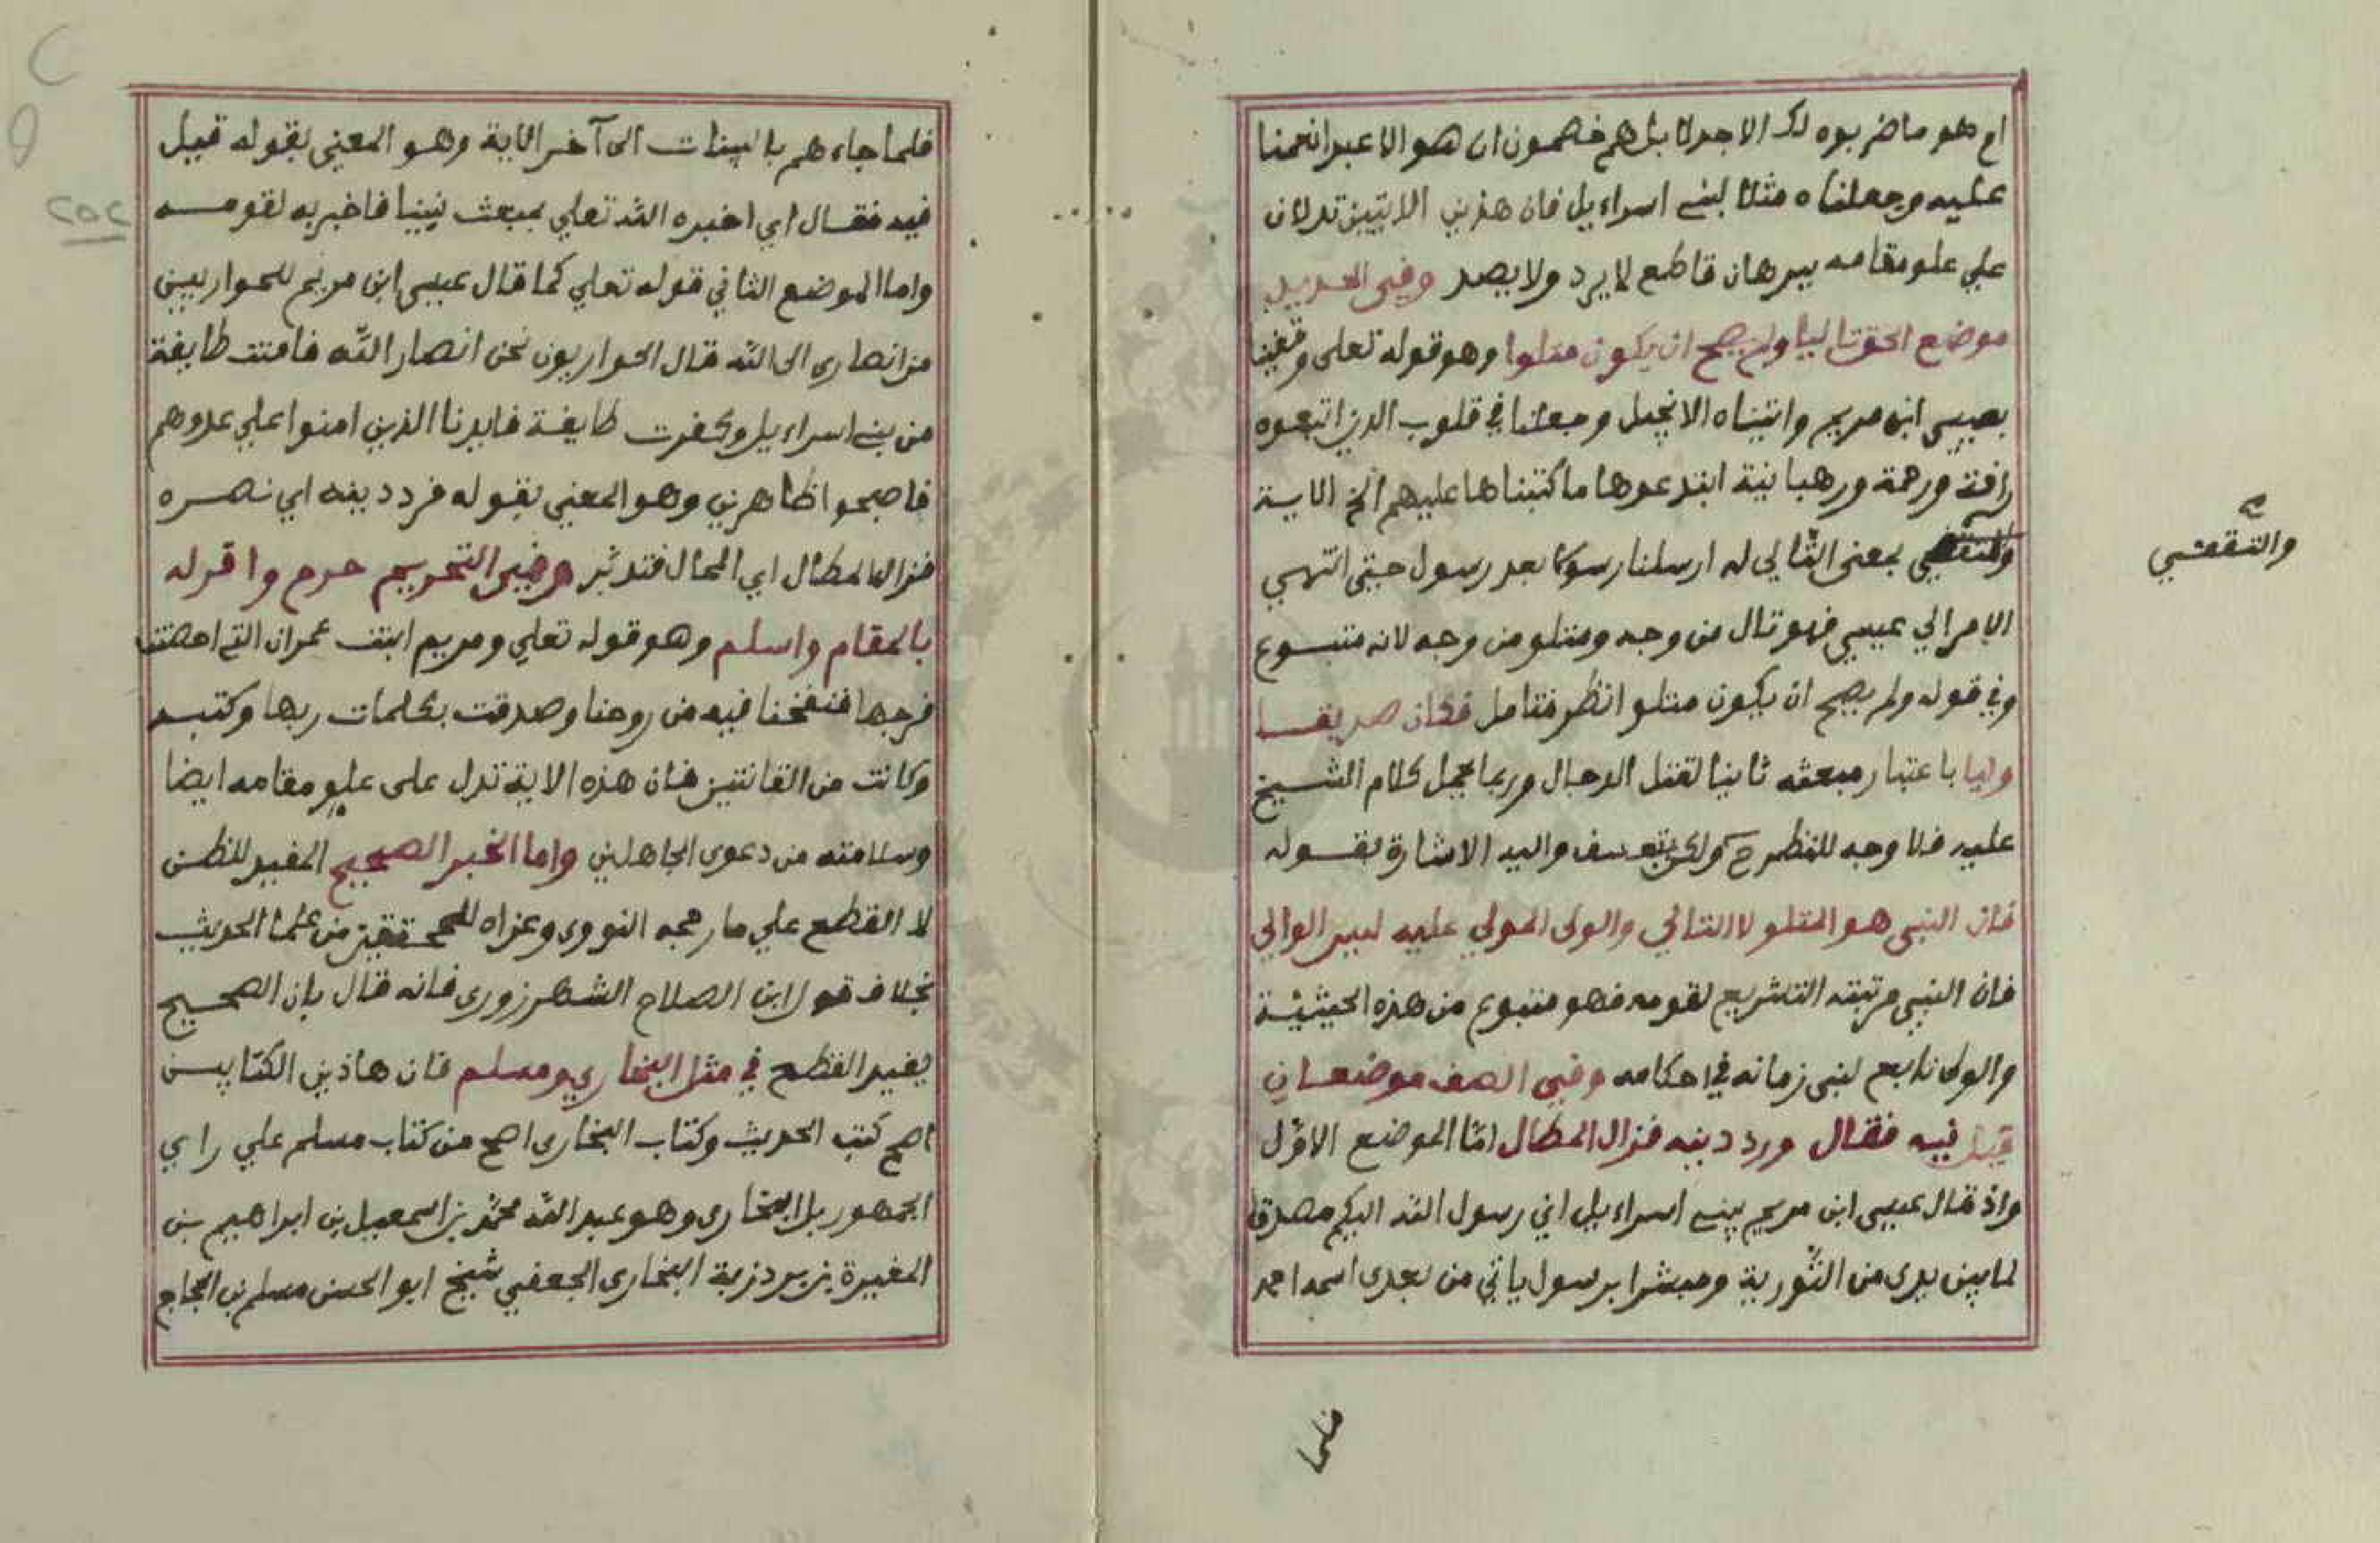 ام هو ما ضربوه لك الا جدلا بل هم خصمون ان هو الا عبد انعمنا
عليه وجعلناه مثلا لبنى اسراءيل فان هذين الايتين تدلان
علي علو مقامه ببرهان قاطع لا يرد ولا يصد وفى الحديد
موضع الحق تاليا ولم يصح ان يكون متلوا وهو قوله تعلى وقفينا
بعيسى ابن مريم واتيناه الانجيل وجعلنا في قلوب الذين اتبعوه
رافة ورحمة ورهبانية ابتدعوها ما كتبناها عليهم الخ الاية
بمعنى التالي له ارسلنا رسولا بعد رسول حتى انتهي
والتقفي
الامر الي عيسي فهو تال من وجه ومتلو من وجه لانه متبوع
وفي قوله ولم يصح ان يكون متلوا نظر فتامل فكان صديقا
وليا باعتبار مبعثه ثانيا لقتل الدجال وربما يحمل كلام الشيخ
عليه فلا وجه للنظر ح ولكن بتعسف واليه الاشارة بقوله
فان النبى هو المتلو لا التالي والولى المولي عليه ليس الوالي
فان النبي مرتبته التشريع لقومه فهو متبوع من هذه الحيثية
والولى تابع لنبى زمانه في احكامه وفى الصف موضعان
قيل فيه فقال ورد دينه فزال المطال امّا الموضع الاوّل
واذ قال عيسى ابن مريم يبنى اسراءيل اني رسول الله اليكم مصدقا
لما بين يدى من التورية ومبشرا برسول ياتي من بعدى اسمه احمد
فلما
فلما جاءهم بالبينات الى آخر الاية وهو المعني بقوله قيل
فيه فقال اي اخبره الله تعلي بمبعث نبينا فاخبر به لقومه
واما الموضع الثاني قوله تعلي كما قال عيسى ابن مريم للحواريين
من انصارى الى الله قال الحواريون نحن انصار الله فامنت طايفة
من بنى اسراءيل وكفرت طايفة فايدنا الذين امنوا علي عدوهم
فاصبحوا ظاهرين وهو المعني بقوله فرد دينه اي نصره
فزال المطال اي المحال فتدثر وفى التحريم حرم واقوله
بالمقام واسلم وهو قوله تعلي ومريم ابنت عمران التى احصنت
فرجها فنفخنا فيه من روحنا وصدقت بكلمات ربها وكتبه
وكانت من القانتين فان هذه الاية تدل على علو مقامه ايضا
وسلامته من دعوى الجاهلين واما الخبر الصحيح المفيد للظن
لا القطع علي ما رجحه النووى وعزاه للمحققين من علما الحديث
بخلاف قول ابن الصلاح الشهرزورى فانه قال بان الصحيح
يفيد القطع في مثل البخارى ومسلم فان هاذين الكتابين
اصح كتب الحديث وكتاب البخارى اصح من كتاب مسلم علي راي
الجمهور بل البخارى وهو عبد الله محمّد بن اسمعيل بن ابراهيم بن
المغيرة بن بردزبة البخارى الجعفي شيخ ابو الحسن مسلم بن الحجاج
٢٥٢